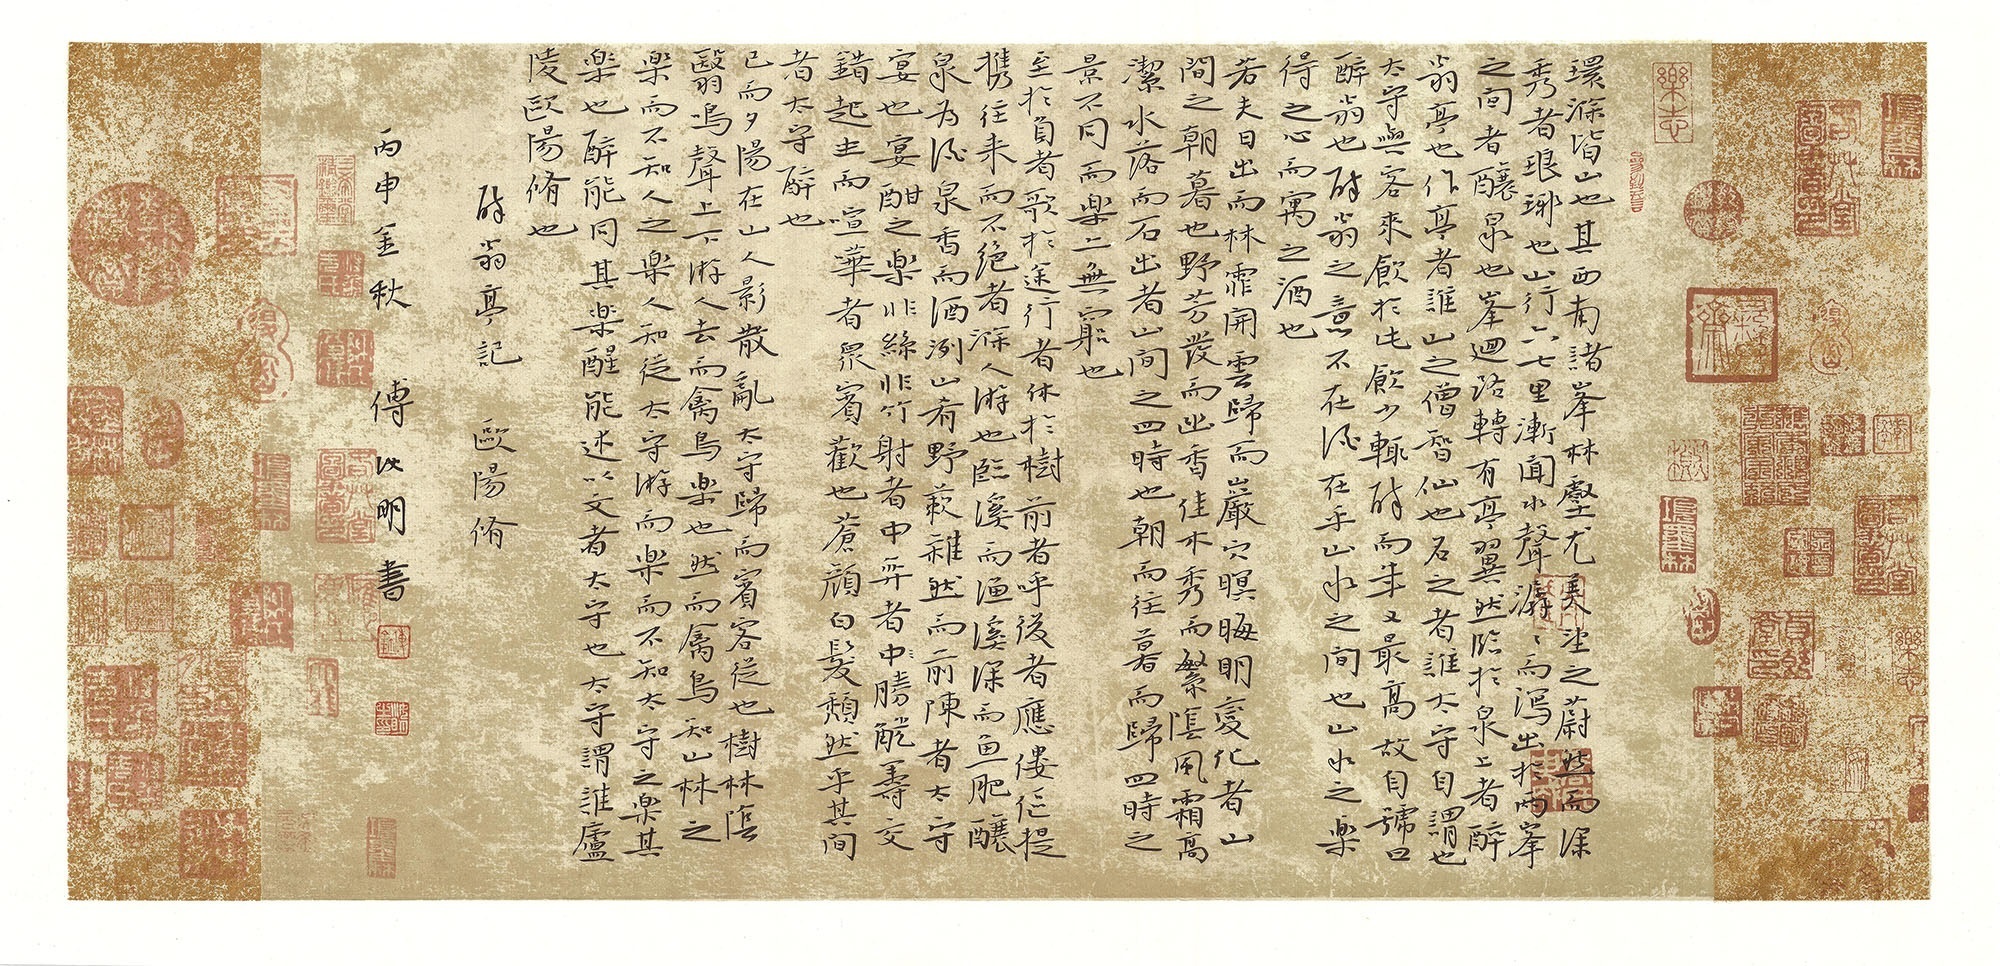 環滁皆山也其西南諸峯林壑尤美望之蔚然而深
秀者琅琊也山行六七里漸聞水聲潺〻而瀉出於兩峯
之间者釀泉也峯迴路轉有亭翼然臨於泉上者醉
翁亭也作亭者誰山之僧智仙也名之者誰太守自謂也
太守與客來飲於此飲少輒醉而年又最高故自號曰
醉翁也醉翁之意不在酒在乎山水之间也山水之樂
得之心而寓之酒也
若夫日出而林霏開雲歸而巖穴暝晦明變化者山
間之朝暮也野芳發而幽香佳木秀而繁陰風霜高
潔水落而石出者山間之四時也朝而往暮而歸四時之
景不同而樂亦無窮也
至於負者歌於途行者休於樹前者呼後者應僂傴提
携往来而不绝者滁人游也臨溪而漁溪深而鱼肥釀
泉为酒泉香而酒洌山肴野蔌雜然而前陳者太守
宴也宴酣之樂非絲非竹射者中弈者中勝觥籌交
錯起坐而喧華者衆賓歡也蒼顏白髮頹然乎其間
者太守醉也
已而夕陽在山人影散亂太守歸而賓客從也樹林陰
翳鳴聲上下游人去而禽鳥樂也然而禽鳥知山林之
樂而不知人之樂人知從太守游而樂而不知太守之樂其
樂也醉能同其樂醒能述以文者太守也太守謂誰廬
陵歐陽脩也
醉翁亭記 歐陽脩
丙申金秋 傅 明書